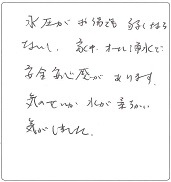 水圧がお値段も弱くなら
ないし、家中オール浄水で
安全安心感があります。
気のせいか水が柔らかい
気がしました。